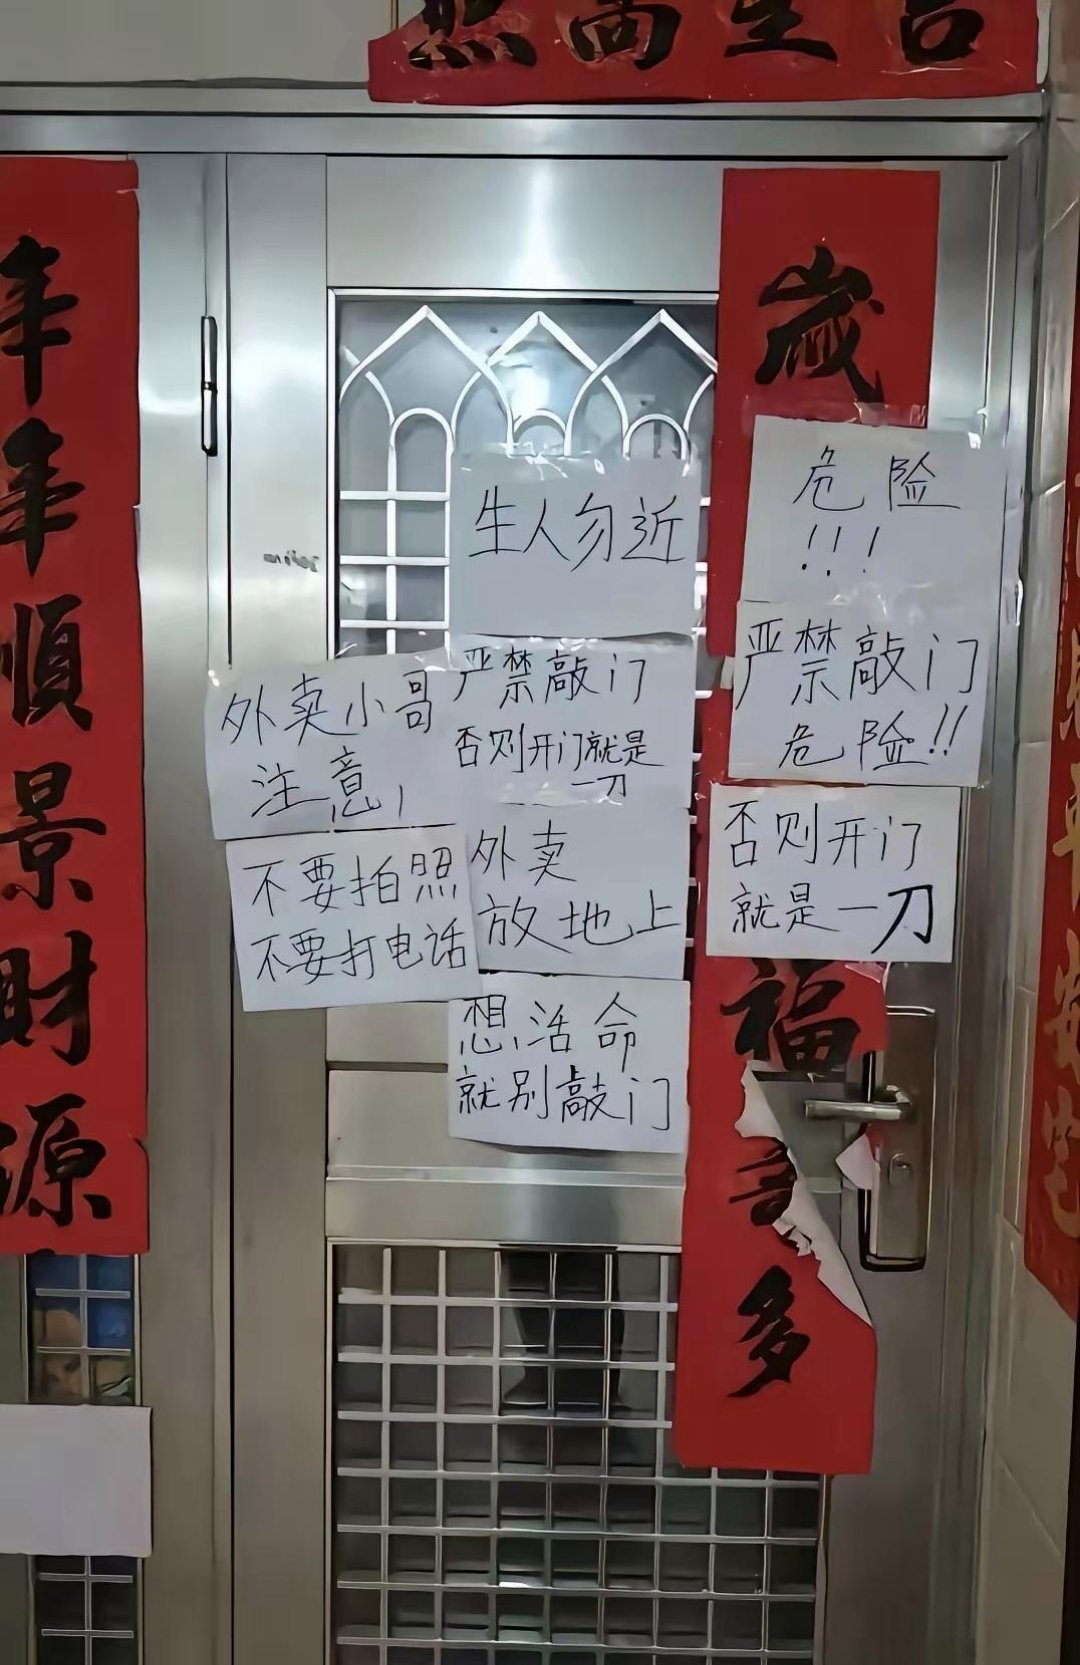 照高星吉
年年順景財源
歲
福
多
生人勿近
危险
!!!
严禁敲门
危险!!
否则开门
就是一刀
外卖小哥
注意,
不要拍照
不要打电话
严禁敲门
否则开门就是
一刀
外卖
放地上
想活命
就别敲门
平安宅